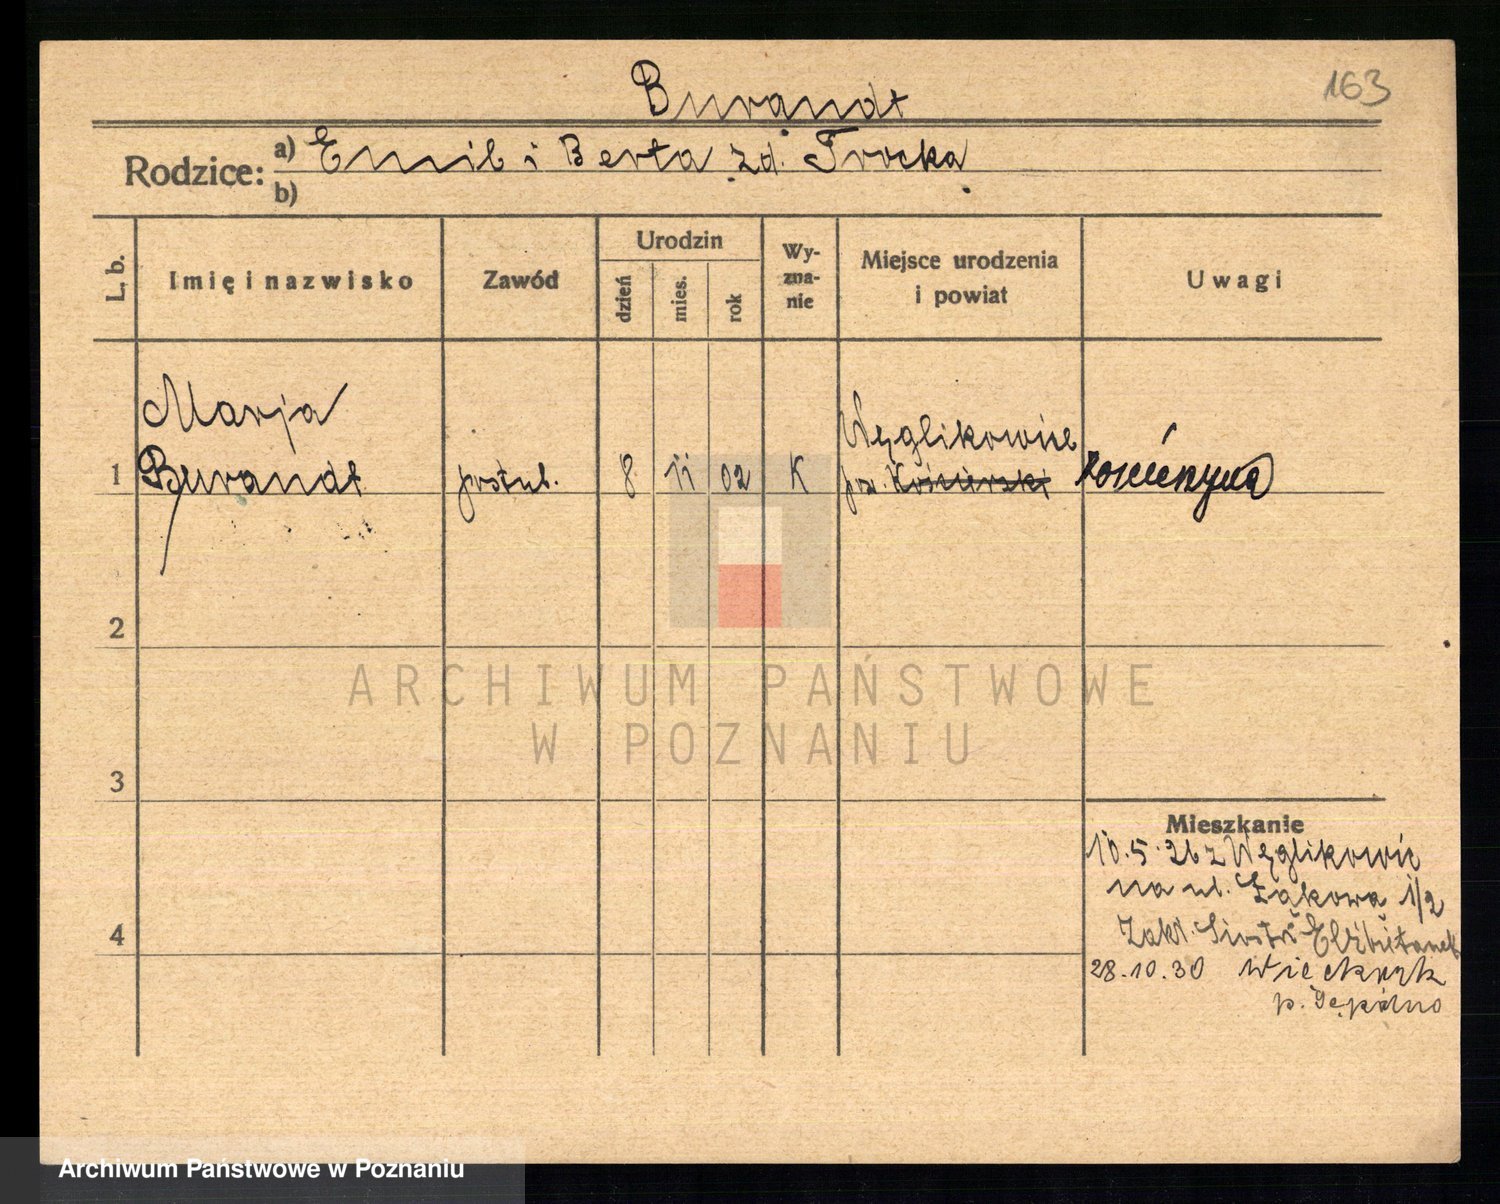 163
Burandt
Rodzice:
a) Emil i Berta zd. Trocka
b)
L. b.
Imię i nazwisko
Zawód
Urodzin
dzień
mies.
rok
Wy-
zna-
nie
Miejsce urodzenia
i powiat
Uwagi
Marja
1 Burandt postul. 8 11 02 K Węglikowice
pow. Kościerski Kościerzyna
2
3
4
Mieszkanie
10.5.26 z Węglikowic
na ul. Łąkowa 1/2
Zakł. Sióstr Elżbietanek
28.10.30
p. Sępólno
ARCHIWUM PAŃSTWOWE
W POZNANIU
Archiwum Państwowe w Poznaniu